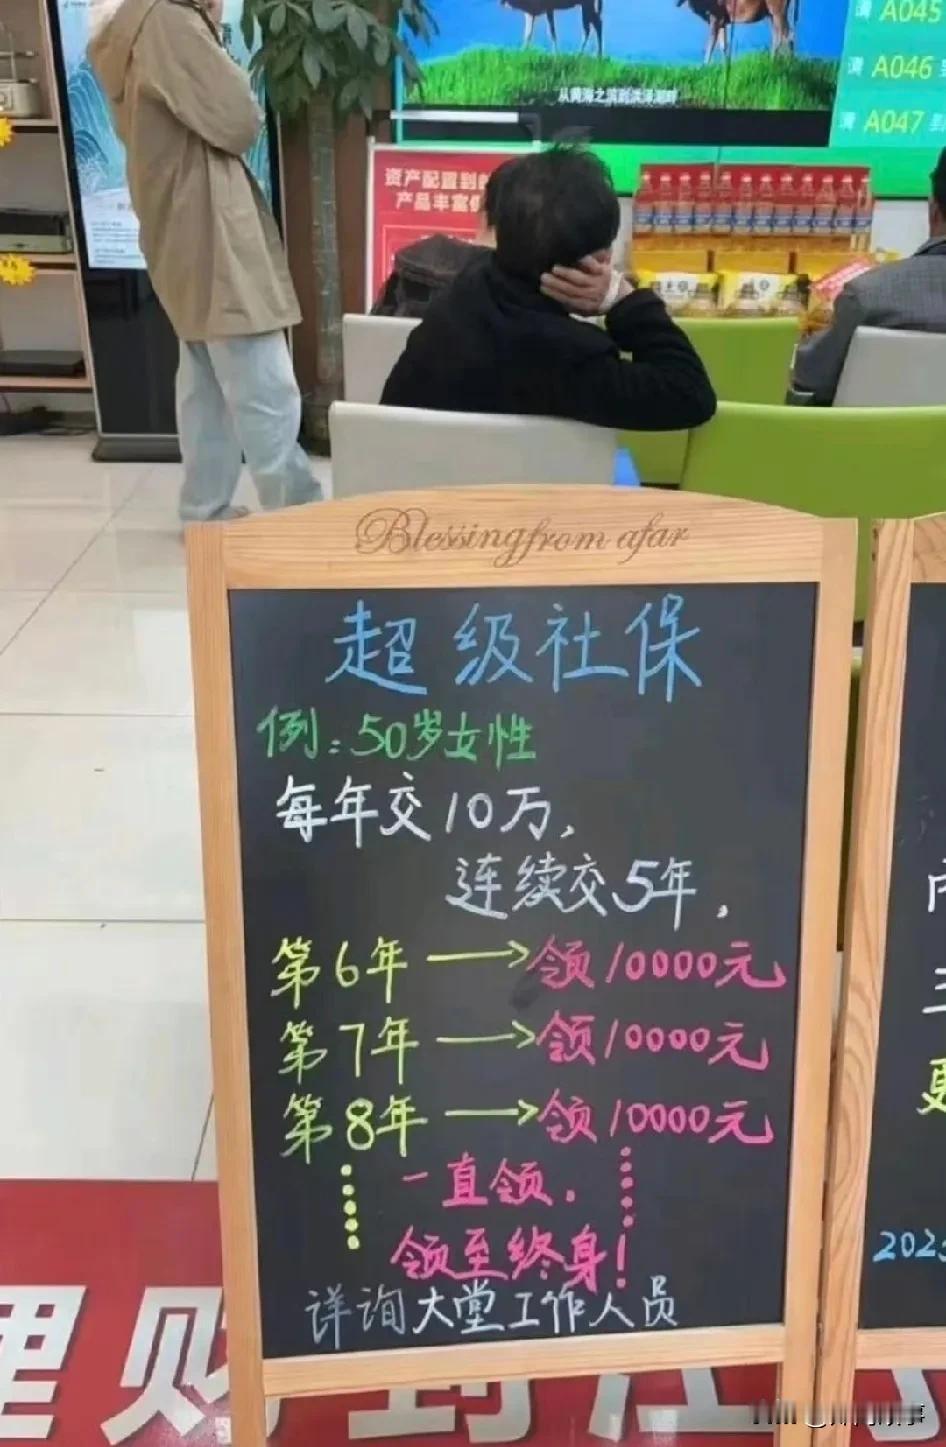 请 A045
请 A046 到
请 A047 到
从黄海之滨到洪泽湖畔
资产配置到
产品丰富
Blessing from afar
超级社保
例：50岁女性
每年交10万，
连续交5年，
第6年 → 领10000元
第7年 → 领10000元
第8年 → 领10000元
一直领，
领至终身！
详询大堂工作人员
2023
理财到江